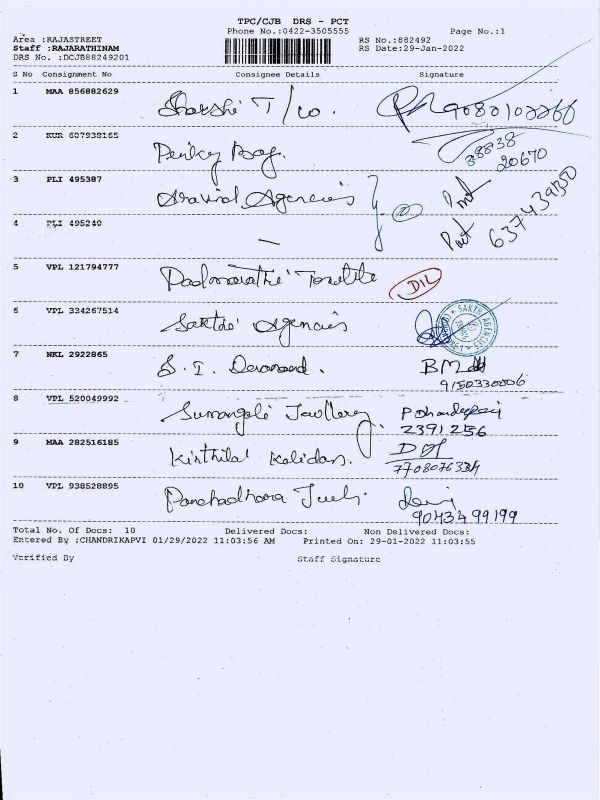 TPC/CJB DRS - PCT
Phone No.:0422-3505555 Page No.:1
Area :RAJASTREET RS No.:882492
Staff :RAJARATHINAM RS Date:29-Jan-2022
DRS No. :DCJB88249201
S No Consignment No Consignee Details Signature
1 MAA 856882629 T/co.
2 KUR 607938165 Bag.
38838
20670
3 PLI 495387 Aravind Agencies
4 PLI 495240 —
5 VPL 121794777 DIL
6 VPL 334267514 Sakthi Agencies
SAKTHI AGENCIES
7 NKL 2922865 S. I. Devanand.
9150330006
8 VPL 520049992 Sumangali Jewllery
2391256
9 MAA 282516185 Kirthilal Kalidas.
7708076334
10 VPL 938528895 Panchadhara
9043499199
Total No. Of Docs: 10 Delivered Docs: Non Delivered Docs:
Entered By :CHANDRIKAPVI 01/29/2022 11:03:56 AM Printed On: 29-01-2022 11:03:55
Verified By Staff Signature